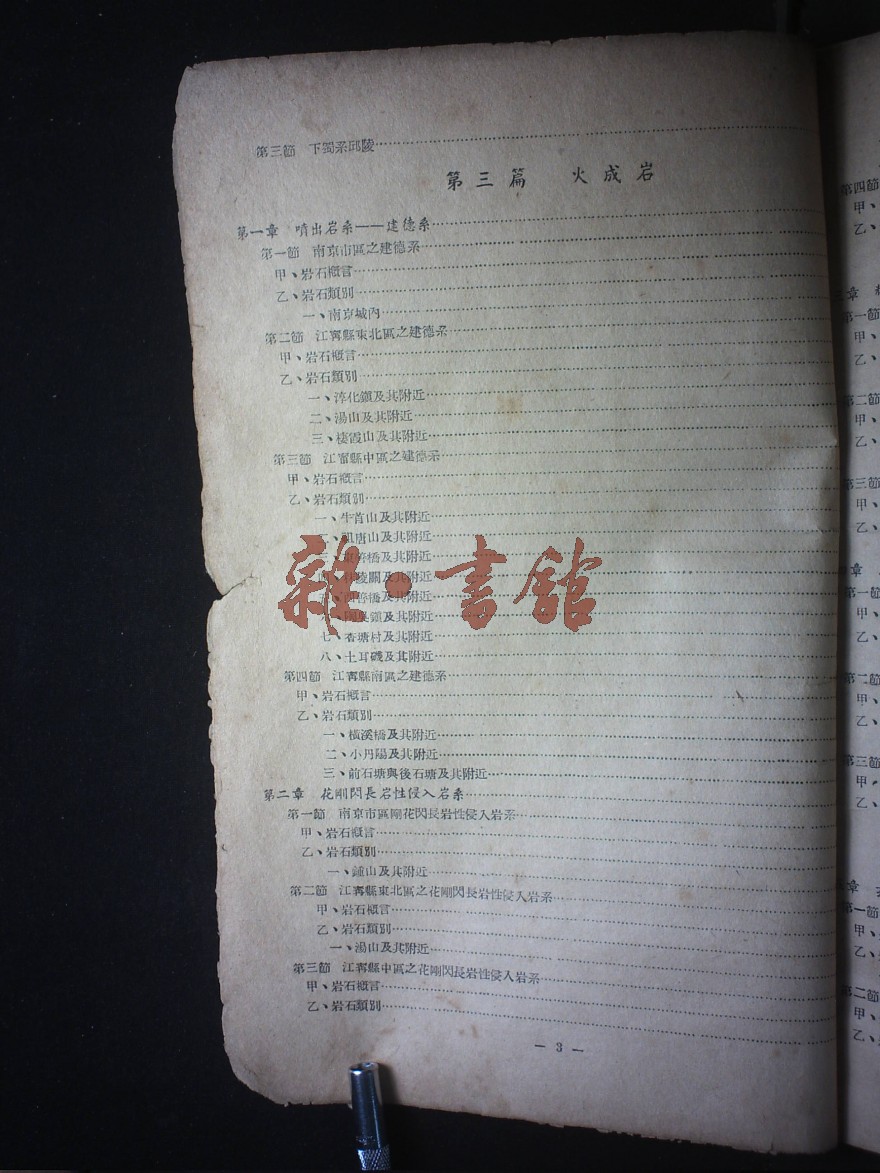 第三節 下蜀系邱陵
第三篇 火成岩
第一章 噴出岩系——建德系
第一節 南京市區之建德系
甲、岩石概言
乙、岩石類別
一、南京城內
第二節 江寗縣東北區之建德系
甲、岩石概言
乙、岩石類別
一、淳化鎭及其附近
二、湯山及其附近
三、棲霞山及其附近
第三節 江寗縣中區之建德系
甲、岩石概言
乙、岩石類別
一、牛首山及其附近
唐山及其附近
橋及其附近
陵關及其附近
橋及其附近
鎭及其附近
七、杏塘村及其附近
八、土耳磯及其附近
第四節 江寗縣南區之建德系
甲、岩石概言
乙、岩石類別
一、橫溪橋及其附近
二、小丹陽及其附近
三、前石塘與後石塘及其附近
第二章 花剛閃長岩性侵入岩系
第一節 南京市區剛花閃長岩性侵入岩系
甲、岩石概言
乙、岩石類別
一、鍾山及其附近
第二節 江寗縣東北區之花剛閃長岩性侵入岩系
甲、岩石概言
乙、岩石類別
一、湯山及其附近
第三節 江寗縣中區之花剛閃長岩性侵入岩系
甲、岩石概言
乙、岩石類別
— 3 —
雜·書館
第四節
甲、
乙、
章
第一節
甲、
乙、
第二節
甲、
乙、
第三節
甲、
乙、
章
第一節
甲、
乙、
第二節
甲、
乙、
第三節
甲、
乙、
章
第一節
甲、
乙、
第二節
甲、
乙、